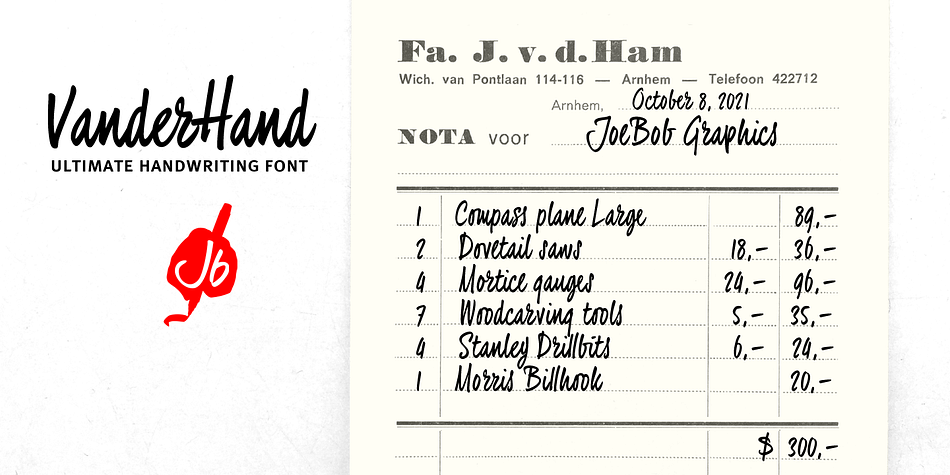 VanderHand
ULTIMATE HANDWRITING FONT
Jb
Fa. J. v. d. Ham
Wich. van Pontlaan 114-116 — Arnhem — Telefoon 422712
Arnhem, October 8, 2021
NOTA voor JoeBob Graphics
1 Compass plane Large 89,-
2 Dovetail saws 18,- 36,-
4 Mortice gauges 24,- 96,-
7 Woodcarving tools 5,- 35,-
4 Stanley Drillbits 6,- 24,-
1 Morris Billhook 20,-
$ 300,-